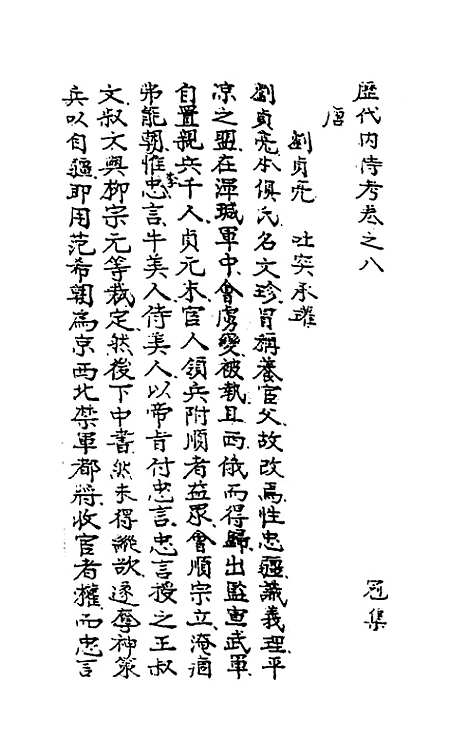 歷代內侍考卷之八 冠集
唐
劉貞亮 吐突承璀
劉貞亮本俱氏名文珍冒稱養宦父故改焉性忠彊識義理平
涼之盟在渾瑊軍中會虜變被執且西俄而得歸出監宣武軍
自置親兵千人貞元末宦人領兵附順者益眾會順宗立淹痼
弗能朝惟李忠言牛美人侍美人以帝旨付忠言忠言授之王叔
文叔文與柳宗元等裁定然後下中書然未得縱欲遂奪神策
兵以自彊即用范希朝為京西北禁軍都將收宦者權而忠言